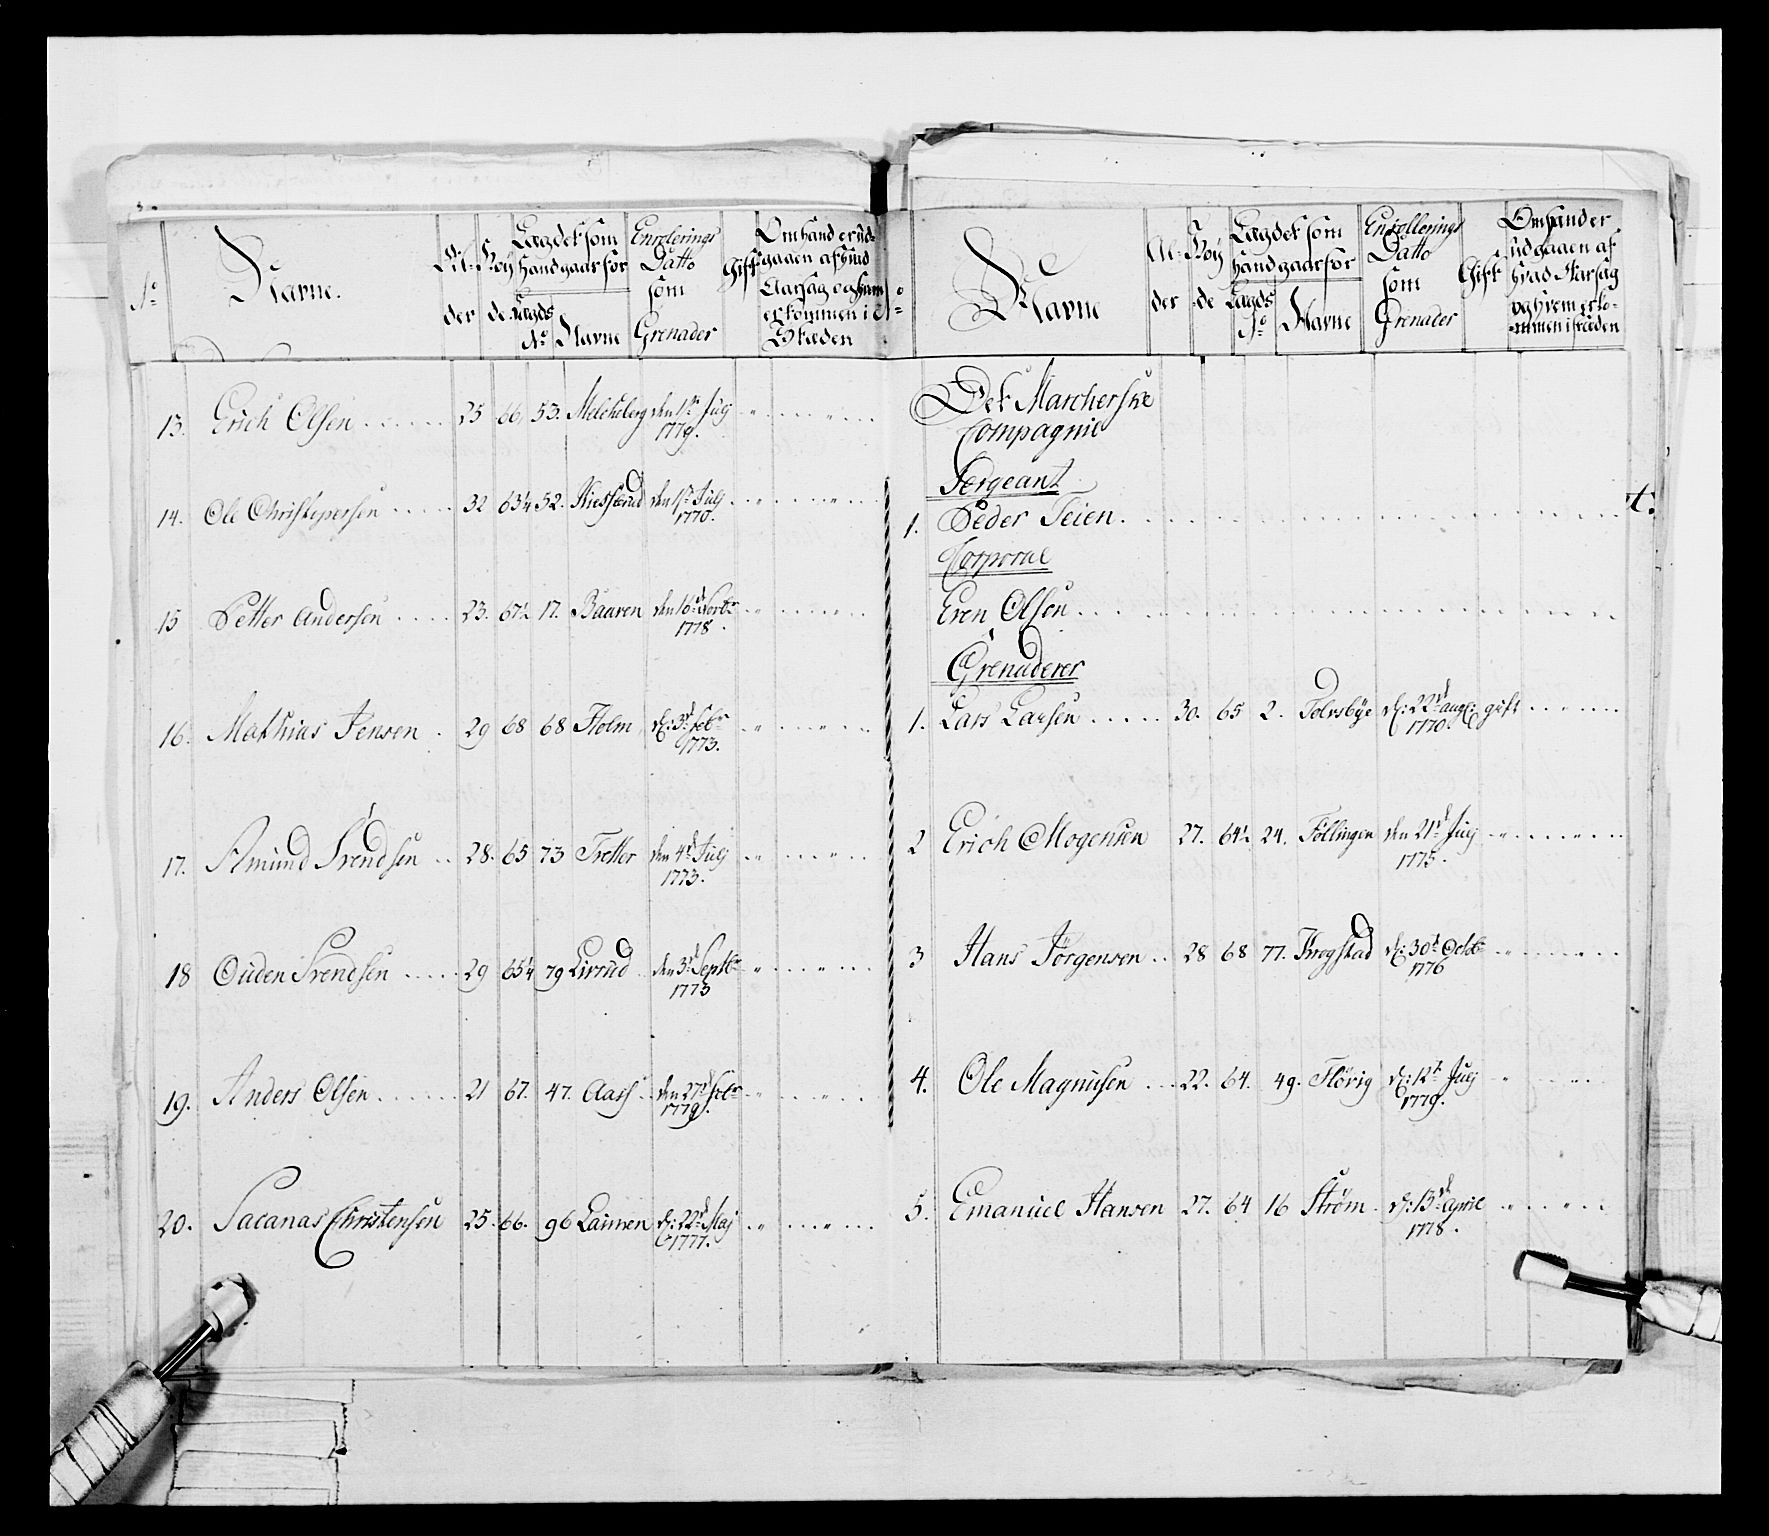 No
Navne.
Al-
der
Høy
de
Lagdet som
hand gaar for
Lagds
No
Navne
Enrolerings
Datto
som
Grenader
Gift
Om hand er ud-
gaaen af hvad
Aarsag og hvem
er kommen i
Stæden
13. Erich Olsen 25 66 53. Melcheberg den 1te Julj
1779.
14. Ole Christopersen 32 63¼ 52. Kiesserud den 1te Julj
1770.
15 Petter Andersen 23. 67½ 17. Baaren den 16d Sebr
1778.
16. Mathias Jensen 29 68 68 Holm d: 3d Febr
1773.
17. Amund Svendsen 28. 65 73 Tretter den 4d Julj
1773.
18 Ouden Svendsen 29 65¼ 79 Lierud den 3d Septbr
1773
19. Anders Olsen 21 67. 47. Aass den 27d Febr
1779.
20. Sacanas Christensen 25. 66. 96 Laimen d: 22d Maj
1777.
No
Navne
Al-
der
Høy
de
Lagdet som
hand gaar for
Lagds
No
Navne
Enrollerings
Datto
som
Grenader
Gift
Om hand er
udgaaen af
hvad Aarsag
og hvem er ko-
mmen i stæden
Det Marcherske
Compagnie
Sergeant
1. Peder Teien
Corporal
Even Olsen
Grenaderer
1. Lars Larsen 30. 65 2. Tolvsbye d: 22d aug:
1770. gift
2 Erich Mogensen 27. 64½ 24. Föllingen den 21d Julj
1775.
3 Hans Jørgensen 28 68 77. Krogstad d: 30d Octbr
1776
4. Ole Magnusen 22. 64. 49. Flörig d: 12te Julj
1779.
5. Emanuel Hansen 27. 64 16 Strøm d: 13d April
1778.